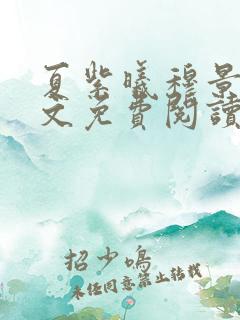 夏紫曦穆景
文免費閱讀
招少鳴
未經同意禁止轉載